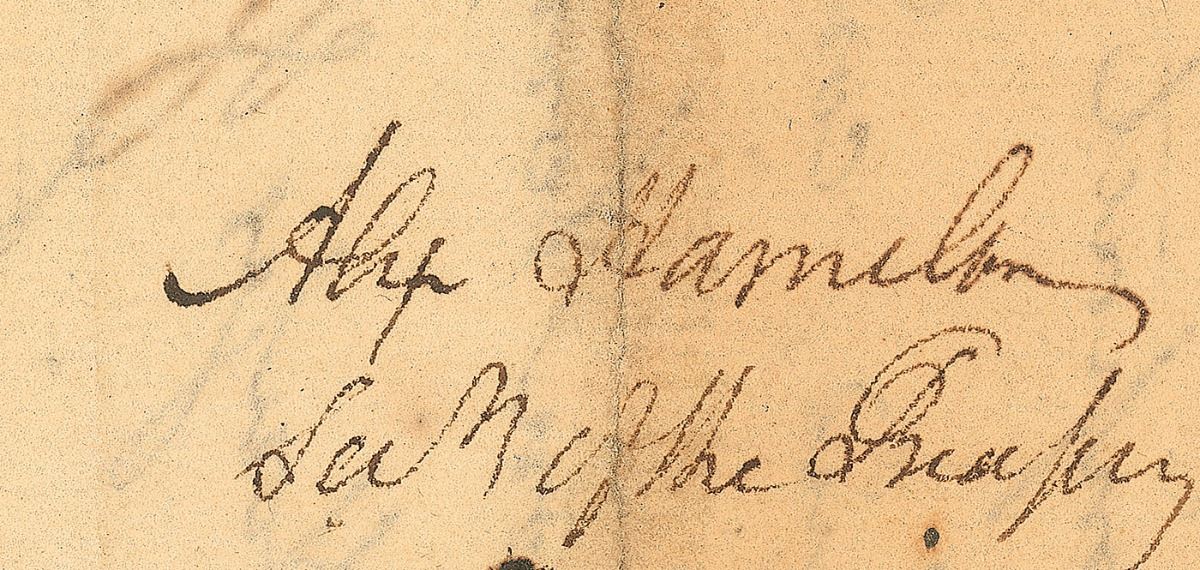 Alex Hamilton
Secy of the Treasury